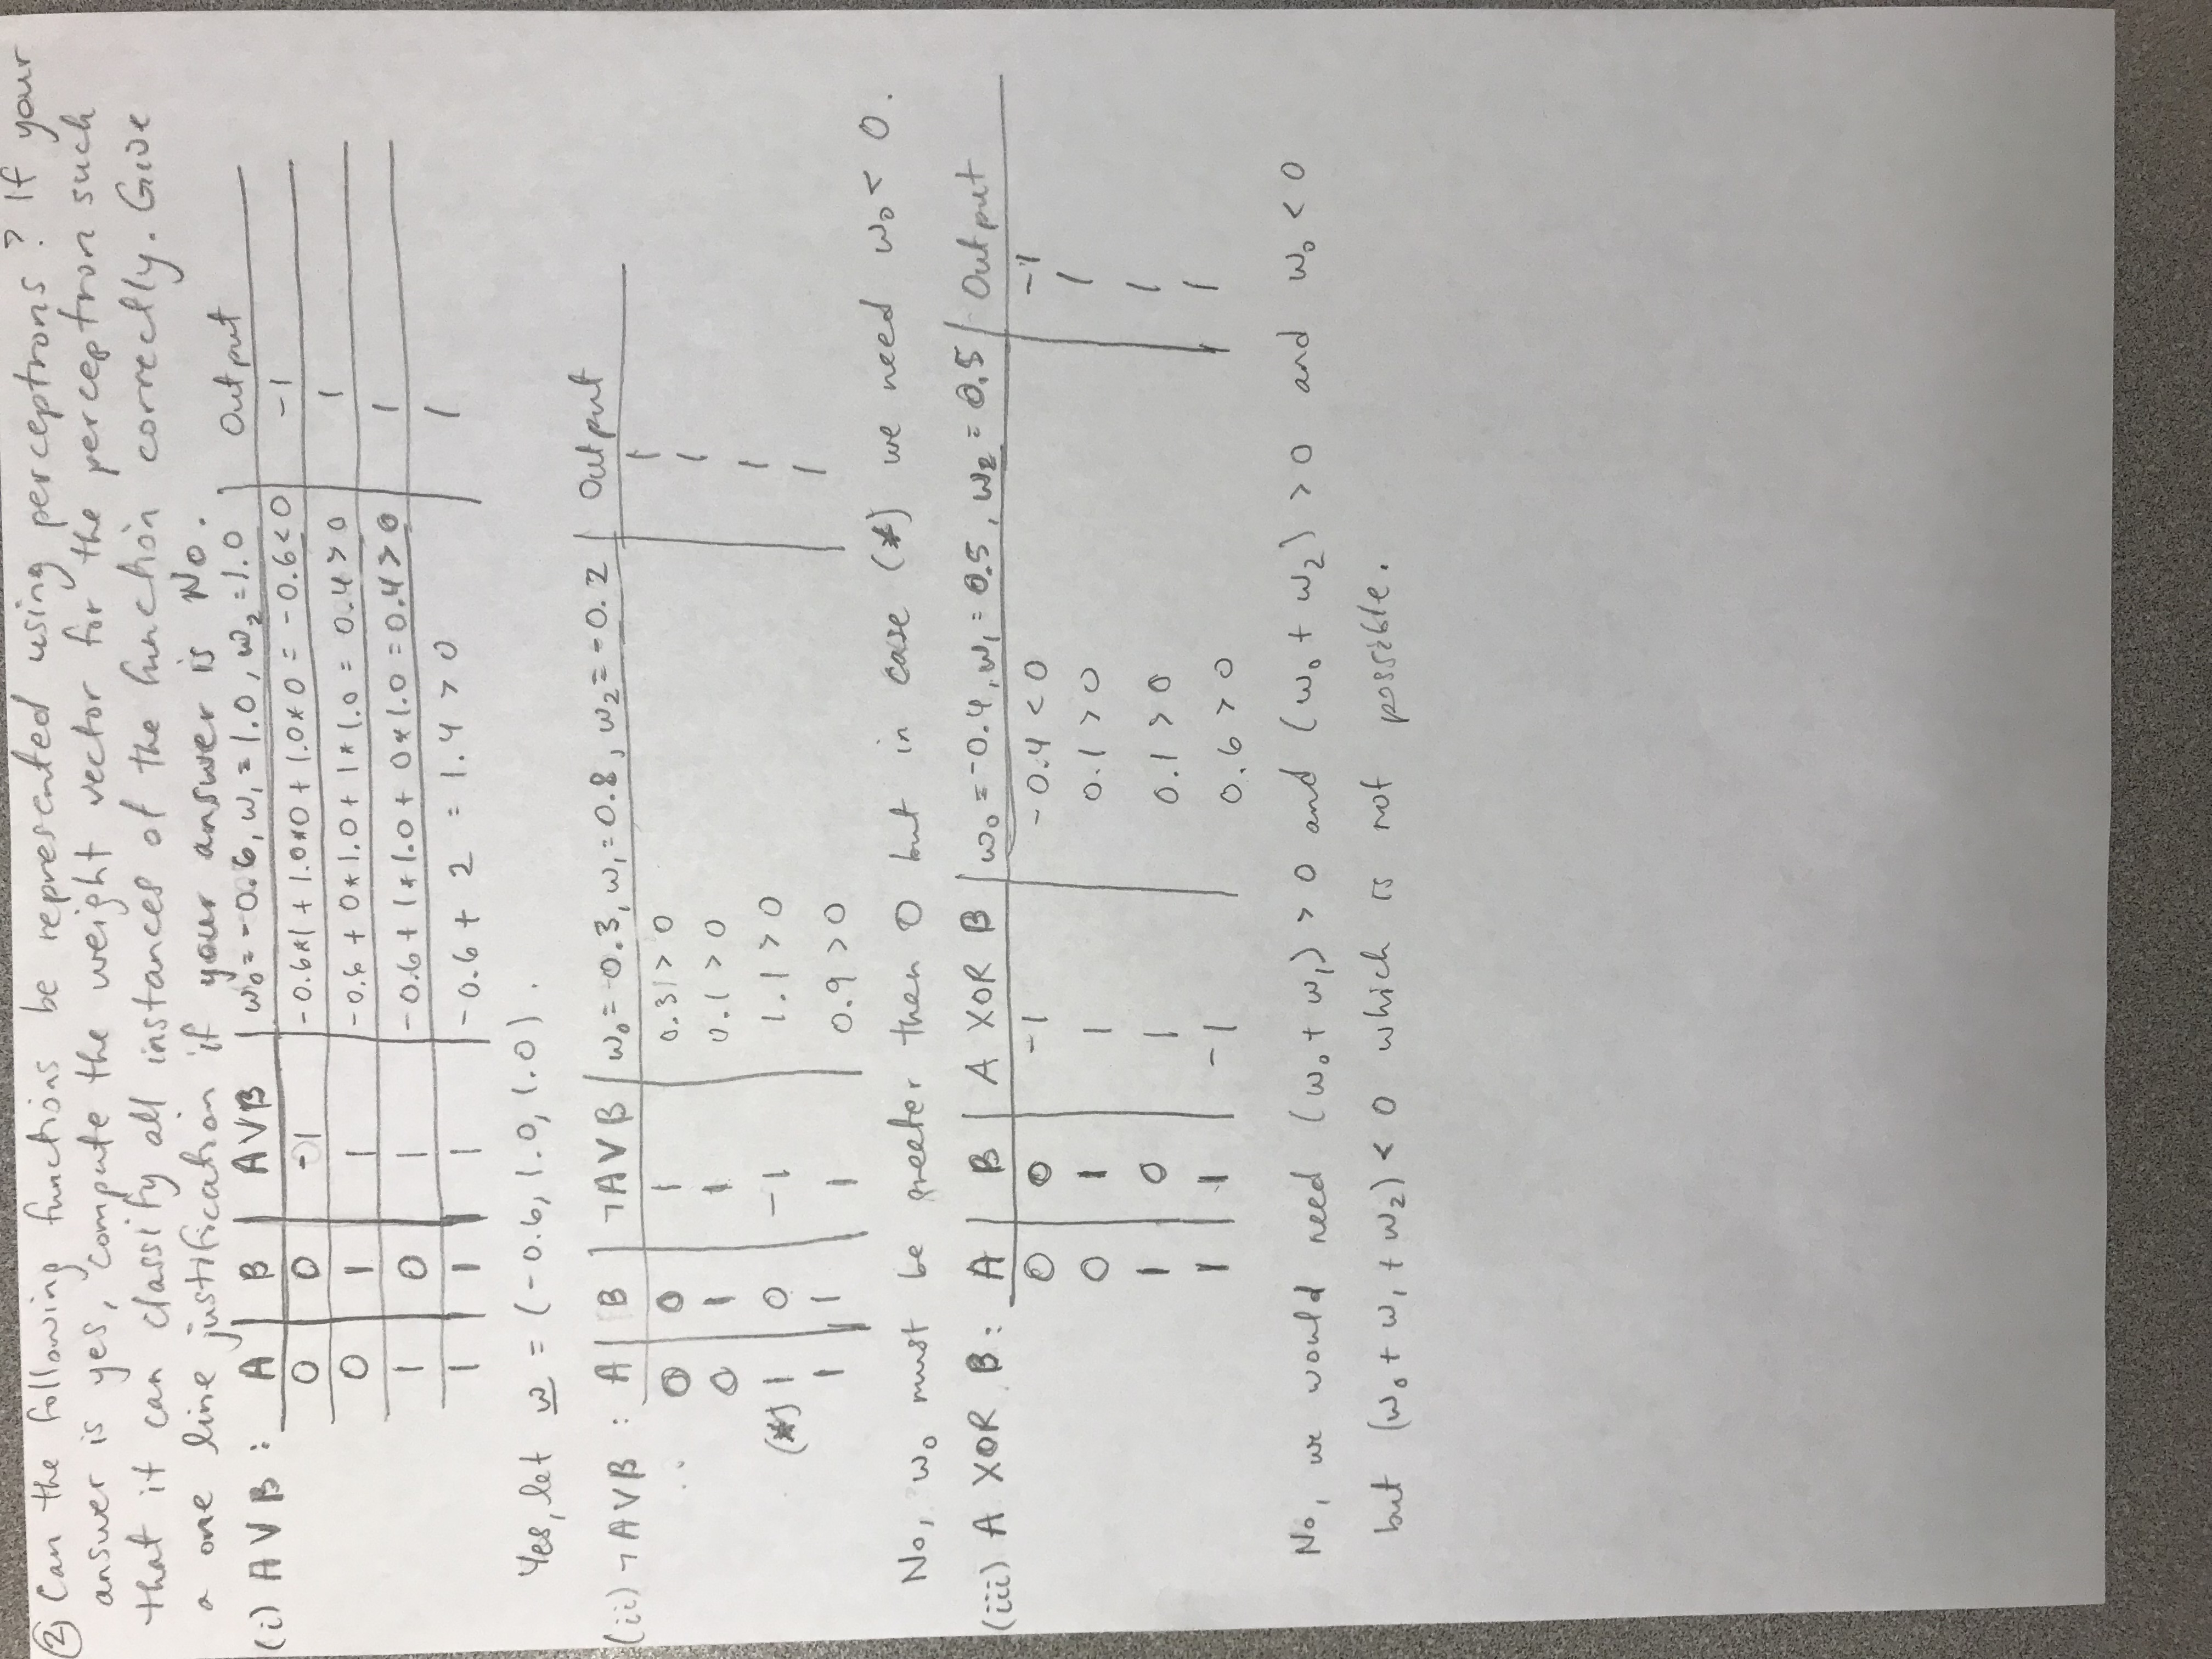 ② Can the following functions be represented using perceptrons? If your
answer is yes, compute the weight vector for the perceptron such
that it can classify all instances of the function correctly. Give
a one line justification if your answer is No.
(i) A ∨ B : A | B | A ∨ B | w₀ = -0.6, w₁ = 1.0, w₂ = 1.0 | Output
0 | 0 | -1 | -0.6*1 + 1.0*0 + 1.0*0 = -0.6 < 0 | -1
0 | 1 | 1 | -0.6 + 0*1.0 + 1*1.0 = 0.4 > 0 | 1
1 | 0 | 1 | -0.6 + 1*1.0 + 0*1.0 = 0.4 > 0 | 1
1 | 1 | 1 | -0.6 + 2 = 1.4 > 0 | 1
Yes, let w = (-0.6, 1.0, 1.0).
(ii) ¬A ∨ B : A | B | ¬A ∨ B | w₀ = 0.3, w₁ = 0.8, w₂ = -0.2 | Output
0 | 0 | 1 | 0.3 > 0 | 1
0 | 1 | 1 | 0.1 > 0 | 1
(*) 1 | 0 | -1 | 1.1 > 0 | 1
1 | 1 | 1 | 0.9 > 0 | 1
No, w₀ must be greater than 0 but in case (*) we need w₀ < 0.
(iii) A XOR B : A | B | A XOR B | w₀ = -0.4, w₁ = 0.5, w₂ = 0.5 | Output
0 | 0 | -1 | -0.4 < 0 | -1
0 | 1 | 1 | 0.1 > 0 | 1
1 | 0 | 1 | 0.1 > 0 | 1
1 | 1 | -1 | 0.6 > 0 | 1
No, we would need (w₀ + w₁) > 0 and (w₀ + w₂) > 0 and w₀ < 0
but (w₀ + w₁ + w₂) < 0 which is not possible.